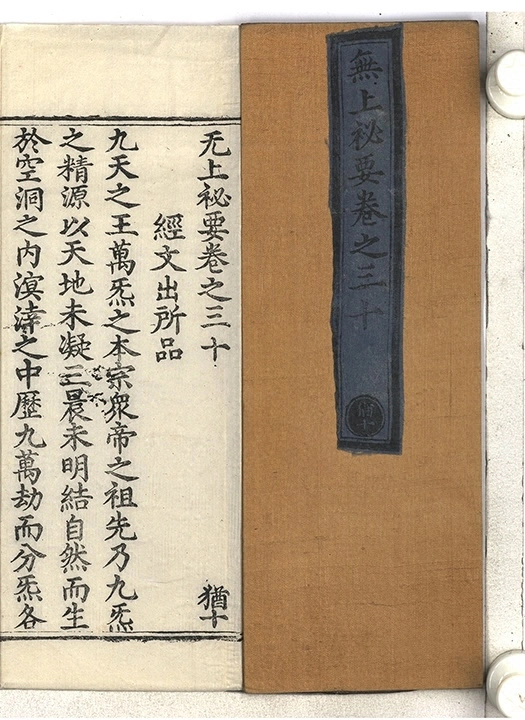 無上祕要卷之三十
猶十
无上祕要卷之三十
猶十
經文出所品
九天之王萬炁之本宗衆帝之祖先乃九炁
之精源以天地未凝三晨未明結自然而生
於空洞之内溟涬之中歷九萬劫而分炁各